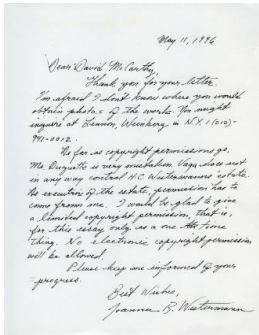 May 11, 1996
Dear David McCarthy,
Thank you for your letter.
I'm afraid I don't know where you would
obtain photos of the works. You might
inquire at Lennon, Weinberg in N.Y. 1(212)-
941-0012.
As far as copyright permissions go,
Mr Duquette is very mistaken. Vaga does not
in any way control H.C. Westermanns' estate.
As executrix of the estate, permission has to
come from me. I would be glad to give
a limited copyright permission, that is,
for this essay only as a one time
thing. No electronic copyright permission
will be allowed.
Please keep me informed of your
progress.
Best Wishes,
Joanna B. Westermann